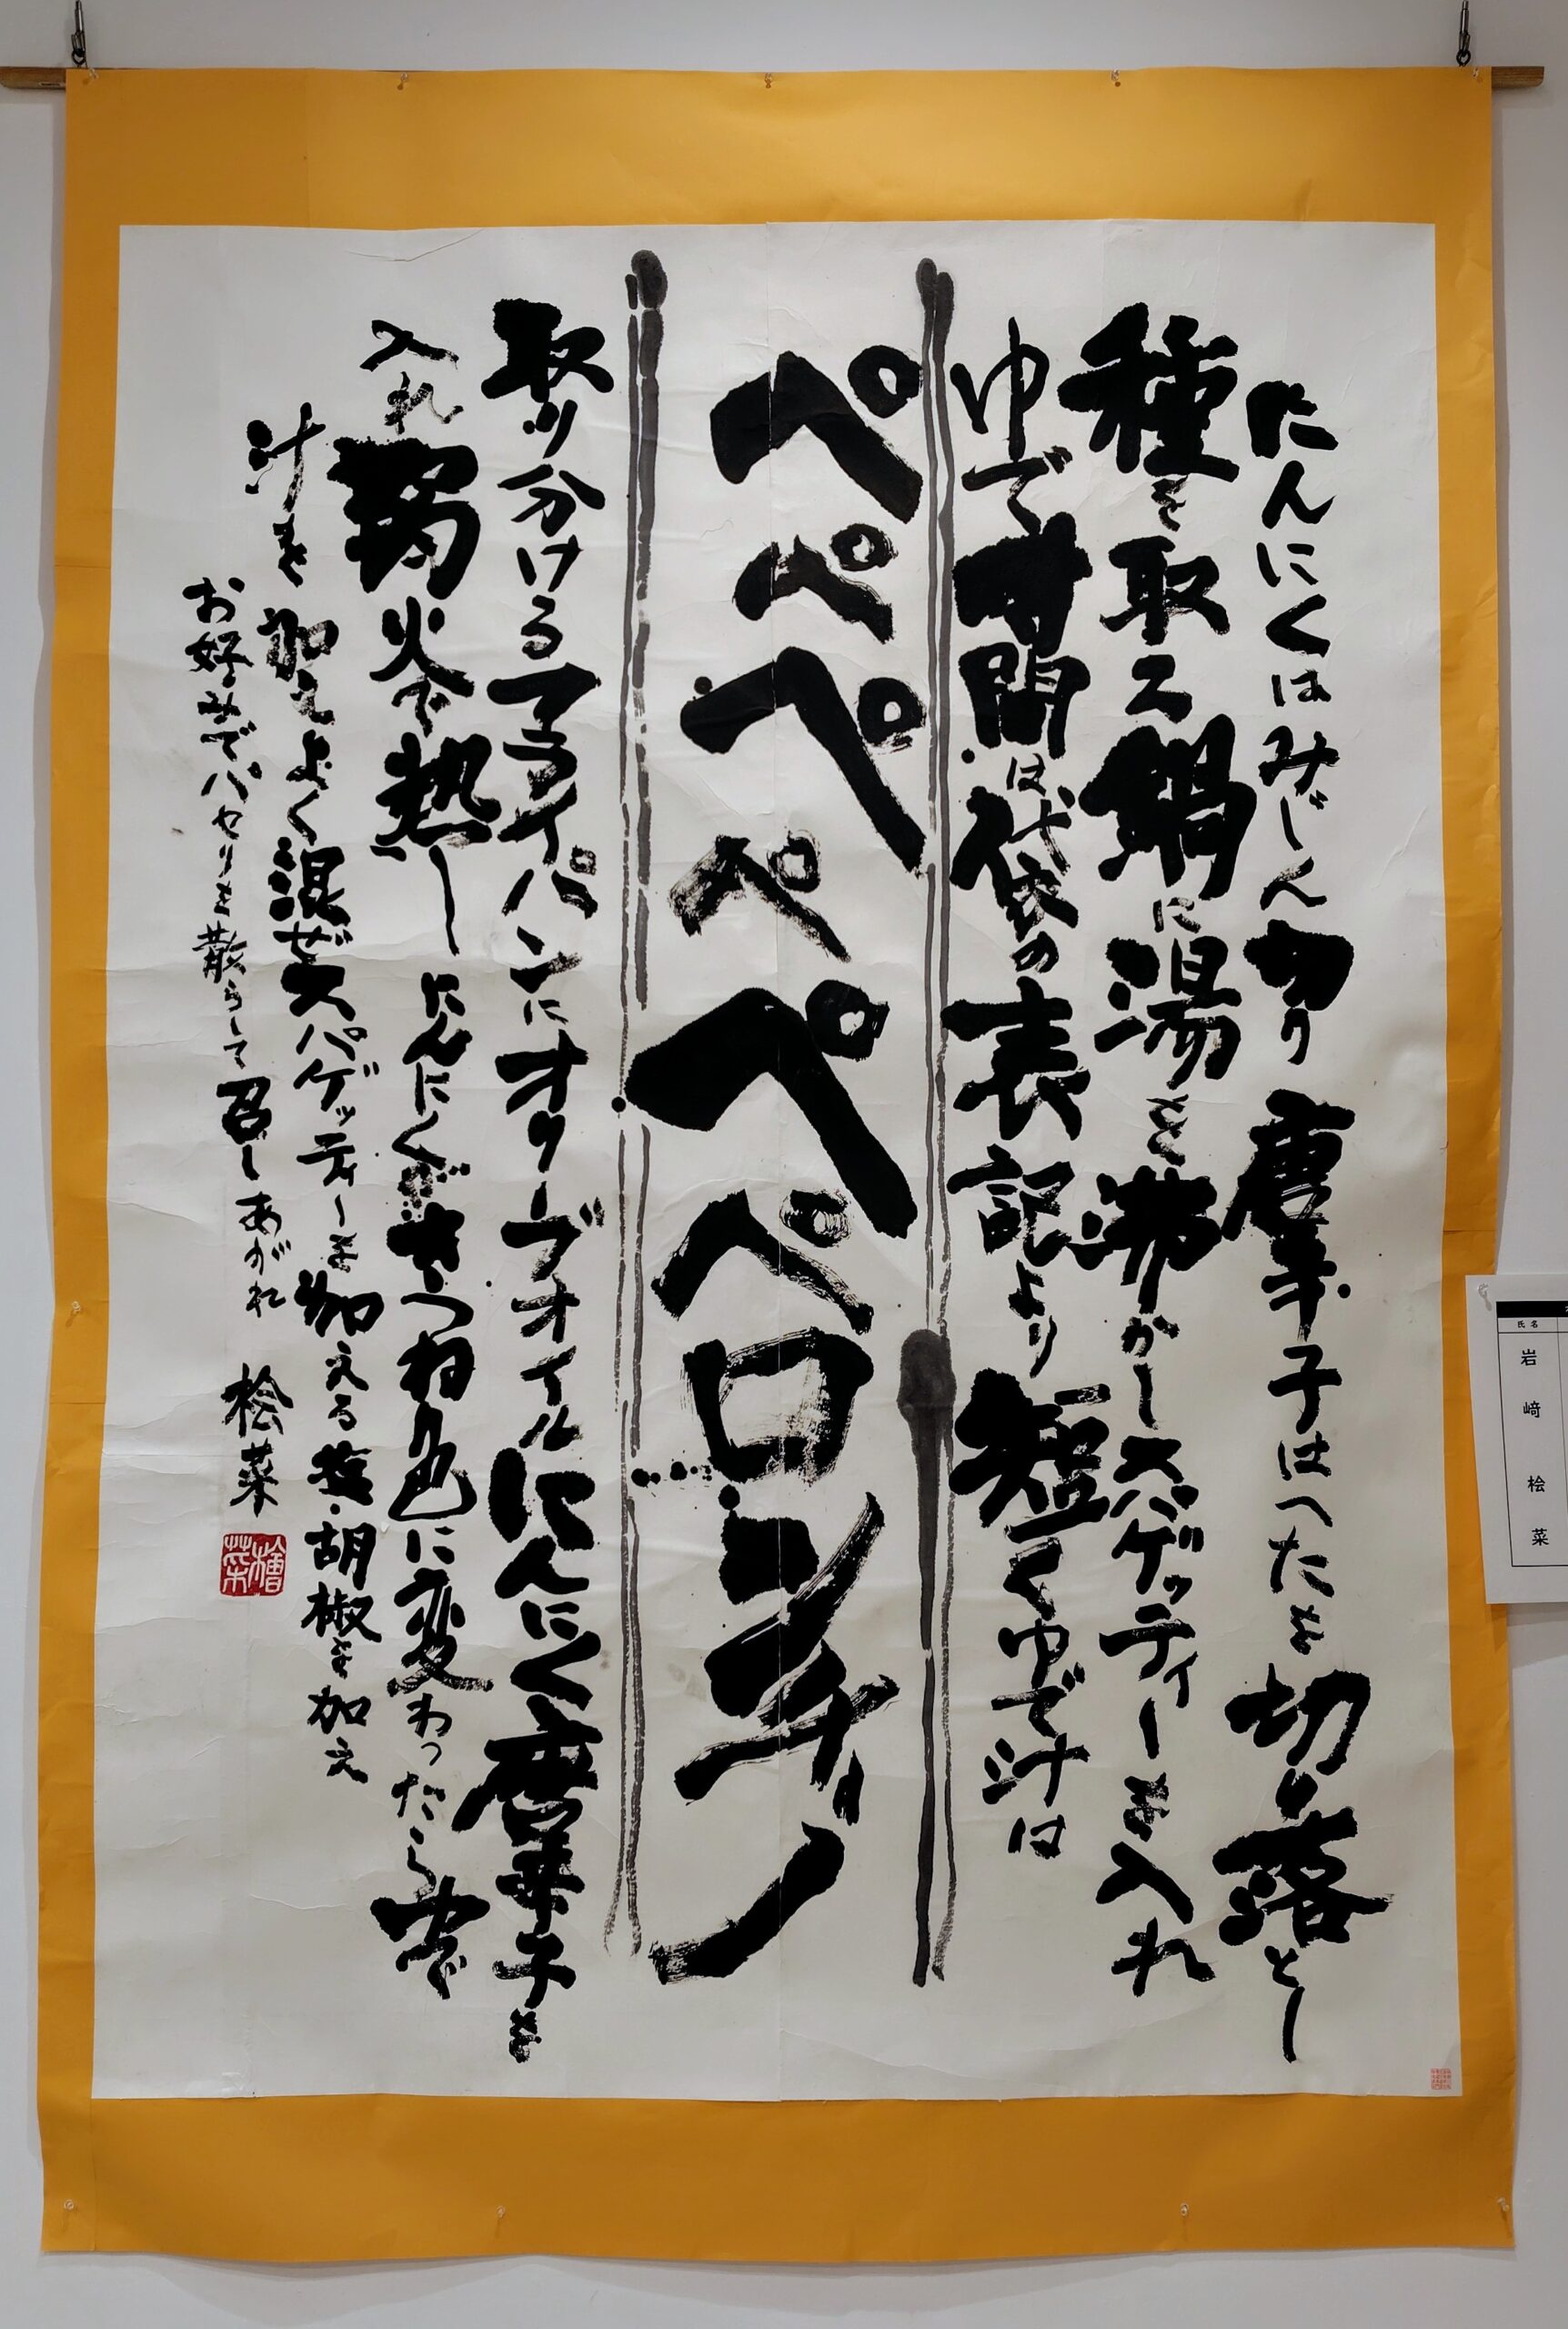 にんにくはみじん切り唐辛子はへたを切り落とし
種を取る鍋に湯を沸かしスパゲッティーを入れ
ゆで時間は袋の表記より短くゆで汁は
ペペペペペペロンチーノ
取り分けるフライパンにオリーブオイルにんにく唐辛子を
入れ弱火で熱しにんにくがきつね色に変わったらゆで
汁を加えよく混ぜスパゲッティーを加える塩・胡椒を加え
お好みでパセリを散らして召しあがれ 桧菜
檜菜
氏名
岩﨑 桧菜